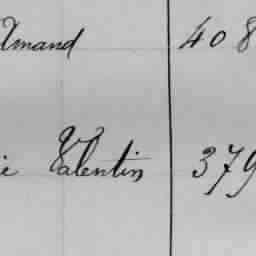 Amand 408
ie Valentin 379